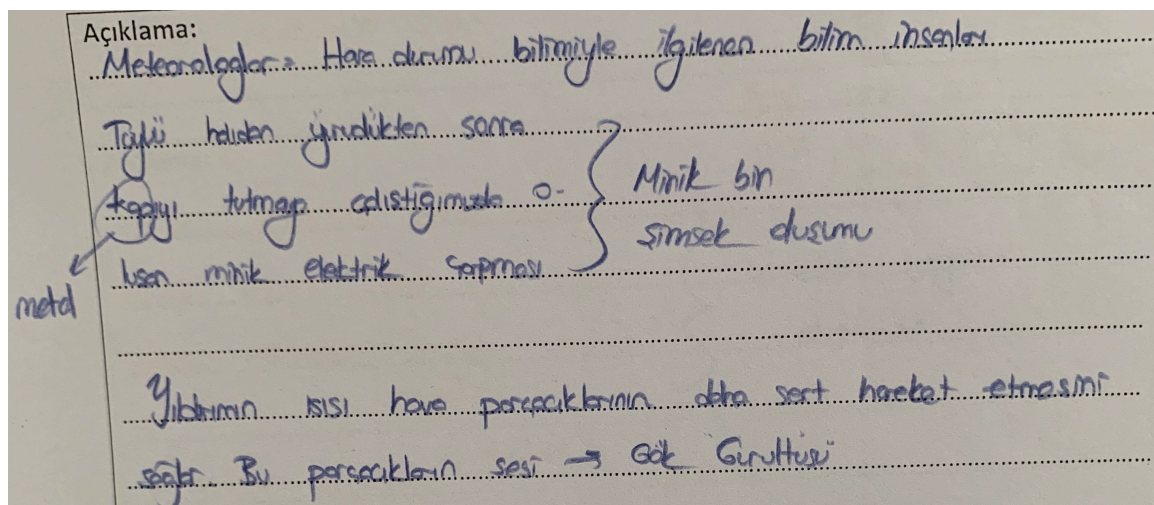 Açıklama:
Meteorologlar = Hava durumu bilimiyle ilgilenen bilim insanları
Tüylü halıdan yürüdükten sonra
kapıyı tutmaya çalıştığımızda o-
luşan minik elektrik çarpması
Minik bir
şimsek dusumu
metal
Yıldırımın ısısı hava parçacıklarının daha sert hareket etmesini
sağlar. Bu parçacıkların sesi → Gök Gürültüsü